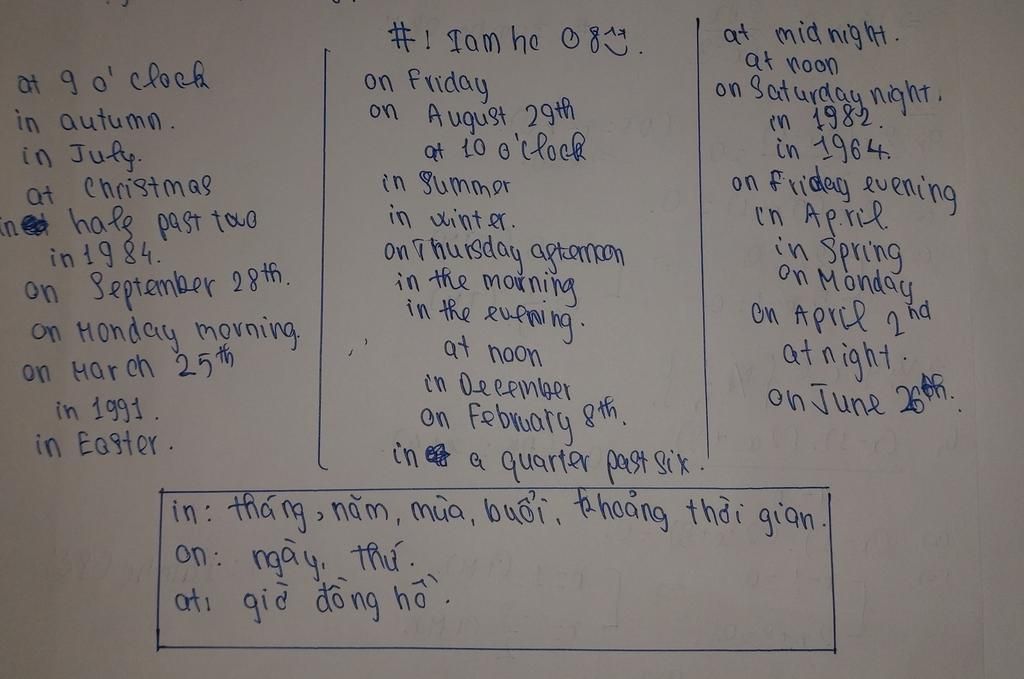 #! I am hc 08
at 9 o'clock
in autumn.
in July.
at Christmas
in half past two
in 1984.
on September 28th.
on Monday morning.
on March 25th
in 1991.
in Easter.
on Friday
on August 29th
at 10 o'clock
in summer
in winter.
on Thursday afternoon
in the morning
in the evening.
at noon
in December
on February 8th.
in a quarter past six.
at midnight.
at noon
on Saturday night.
in 1982.
in 1964.
on Friday evening
in April
in Spring
on Monday
on April 2nd
at night.
on June 26th.
in: tháng, năm, mùa, buổi, khoảng thời gian.
on: ngày, thứ.
at: giờ đồng hồ.